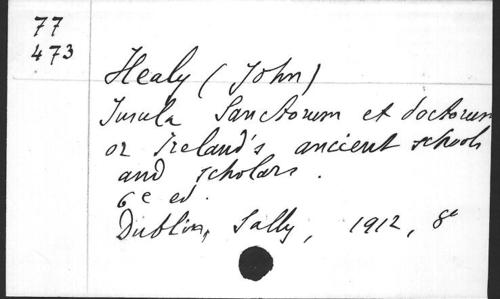 77
473
Healy (John)
Insula Sanctorum et doctorum
or Ireland's ancient schools
and scholars.
6e ed.
Dublin, Sally, 1912, 8°